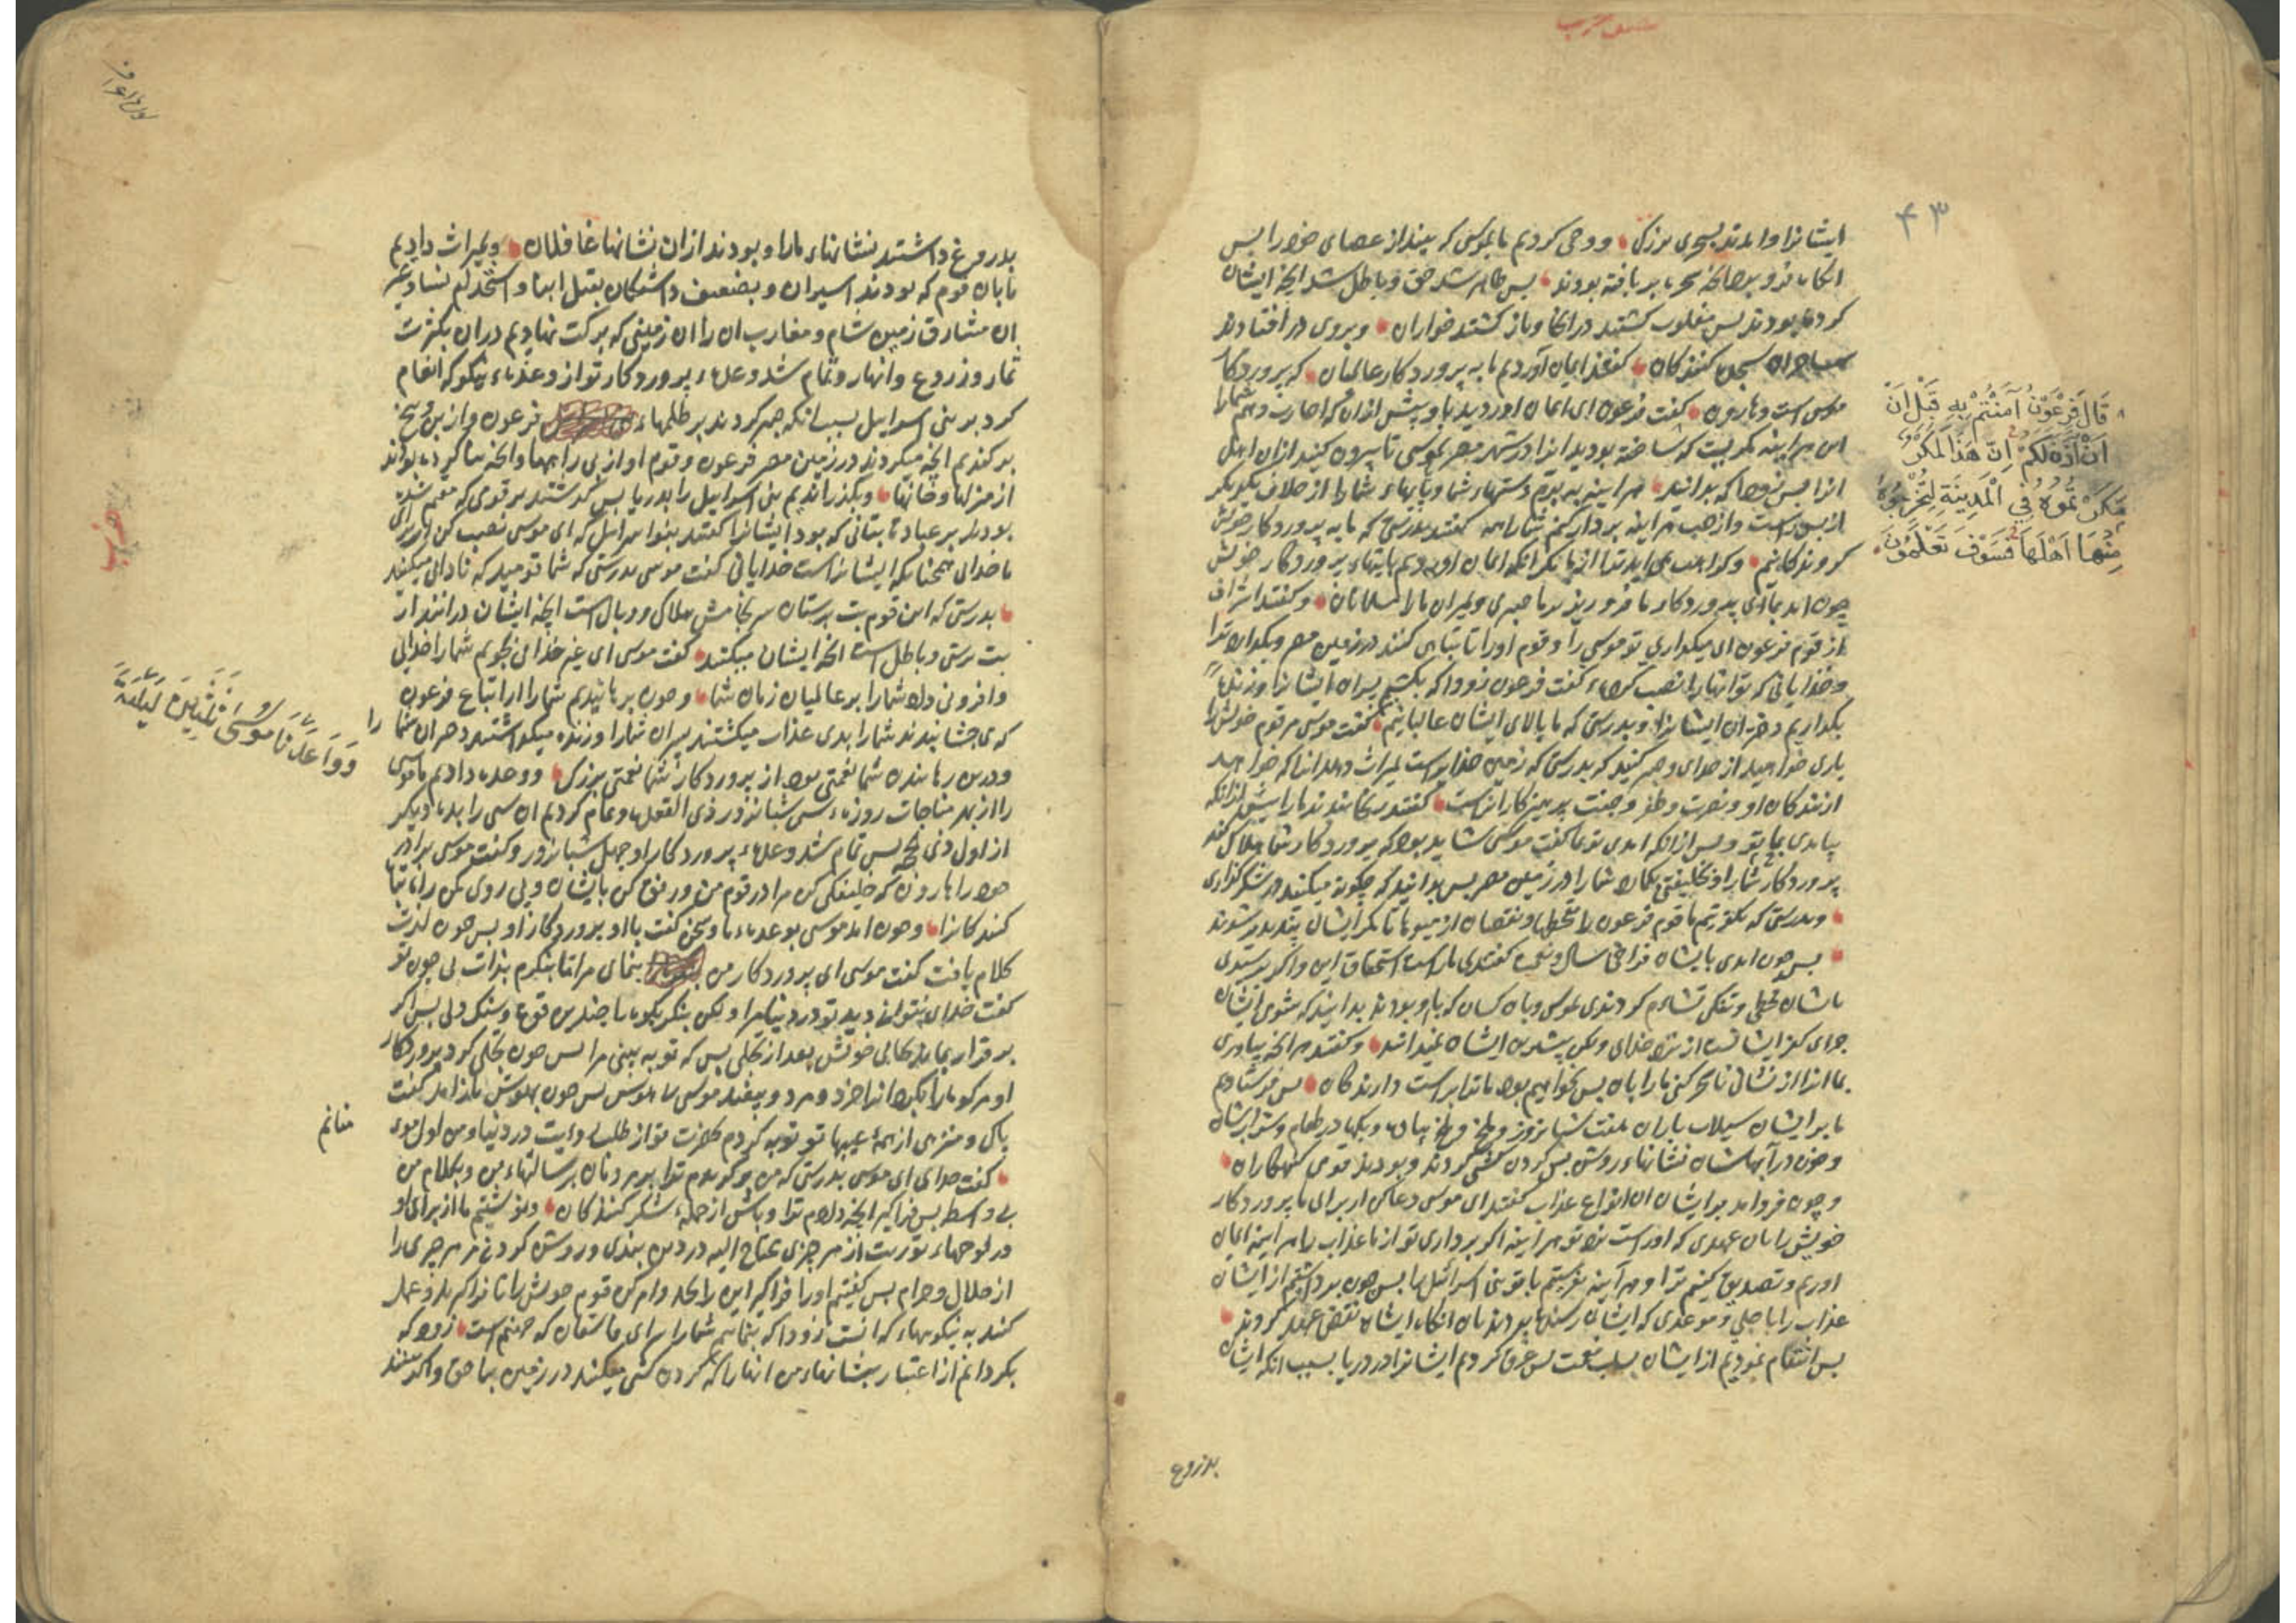 ۴۳
ایشانرا و آمدند بسحری بزرک و وحی کردیم ما بموسی که بینداز عصای خود را پس
انکاه فرو برد انچه بحر بر بافته بودند پس ظاهر شد حق و باطل شد انچه ایشان
کرده بودند پس مغلوب کشتند در انجا و باز کشتند خواران و بروی در افتادند
ساحران سجده کنندکان کفتند ایمان آوردیم ما به پروردکار عالمیان که پروردکار
موسی است و هارون کفت فرعون ای ایمان اوردید باو پیش ازان که اجازت دهم شما را
این هراینه مکریست که ساخته بودید انرا در شهر مصر بموسی تا بیرون کنید ازان اهل
انرا پس زود که بدانید هر اینه به برم دستهاء شما و پایهاء شما را از خلاف یکدیکر
از پس است و از هر اینه بر دار کنم شما را همه کفتند بدرستی که ما به پروردکار خویش
کروندکانیم و کراهت می اید ترا از ما مکر انکه ایمان اوردیم بایتهاء پروردکار خویش
چون امد بما ای پروردکار ما فرو ریز بر ما صبری و بمیران ما را مسلمانان و کفتند اشراف
از قوم فرعون ای میکذاری تو موسی را و قوم او را تا تباهی کنند در زمین مصر و بکذارد ترا
و خدایانی که تو انها را نصب کردهٔ کفت فرعون زود که بکشیم پسران ایشانرا و زنده
بکذاریم دختران ایشانرا و بدرستی که ما بالای ایشان غالبانیم کفت موسی مر قوم خویش را
یاری خواهید از خدای و صبر کنید که بدرستی که زمین خدایراست بمیراث دهد انرا که خواهد
از بندکان او و نصرت و ظفر و جنت پرهیزکارانراست کفتند رنجانیدند ما را پیش ازانکه
بیامدی بما تو و پس ازانکه امدی تو بما کفت موسی شاید بود که پروردکار شما هلاک کند
پروردکار شما را و بخلیفتی بکمارد شما را در زمین مصر پس بداند که چکونه میکنید در شکرکزاری
و بدرستی که بکرفتیم ما قوم فرعون را بقحطها و نقصان از میوها تا مکر ایشان پندپذیر شوند
پس چون امدی بایشان فراخی سال و نعمه کفتندی ما راست استحقاق این و اکر برسیدی
بایشان قحطی و تنکی تشاءم کردندی بموسی و بان کسان که باو بودند بدانید که شومی ایشان
جزای کفر ایشانست از نزد خدای و لکن بیشترین ایشان نمیدانند و کفتند هر انچه بیاوری
بما انرا از نشانی تا سحر کنی ما را بان پس نخواهیم بود ما ترا براست دارندکان پس فرستادیم
ما بر ایشان سیلاب باران هفت شبانروز و ملخ و ملخ پیاده و بکها در طعام و شراب ایشان
و خون در آبهاشان نشانهاء روشن پس کردن کشی کردند و بودند قومی کنهکاران
و چون فرو امد بر ایشان ان انواع عذاب کفتند ای موسی دعا کن از برای ما پروردکار
خویش را بان عهدی که اوراست نزد تو هر اینه اکر برداری تو از ما عذاب را هر اینه ایمان
اوریم و تصدیق کنیم ترا و هر آینه بفرستیم با تو بنی اسرائیل را پس چون برداشتیم از ایشان
عذاب را تا اجلی و موعدی که ایشان رسنده بودند بان انکاه ایشان نقض عهد کردند
پس انتقام نمودیم از ایشان بسلب نعمت پس غرق کردیم ایشانرا در دریا بسبب انکه ایشان
بدروغ
قَالَ فِرْعَوْنُ آمَنْتُمْ بِهِ قَبْلَ اَنْ
اَنْ آذَنَ لَكُمْ اِنَّ هَذَا لَمَكْرٌ
مَكَرْتُمُوهُ فِي الْمَدِينَةِ لِتُخْرِجُوا
مِنْهَا اَهْلَهَا فَسَوْفَ تَعْلَمُونَ
بدروغ داشتند نشانهاء ما را و بودند ازان نشانها غافلان و بمیراث دادیم
ما بان قوم که بودند اسیران و بضعیف داشتکان بقتل ابنا و استخدام نسا و غیر
ان مشارق زمین شام و مغارب ان را ان زمینی که برکت نهادیم دران بکثرت
ثمار و زروع و انهار و تمام شد وعدهاء پروردکار تو از وعدهاء نیکو که انعام
کرد بر بنی اسرایل بسبب انکه صبر کردند بر ظلمهاء فرعون و از بن و بیخ
بر کندیم انچه میکردند در زمین مصر فرعون و قوم او از بناها و انچه بنا کرده بودند
از منزلها و خانها و بکذراندیم بنی اسرایل را بدریا پس کذشتند بر قومی که مقیم شده
بودند بر عبادة بتانی که بود ایشانرا کفتند بنو اسرایل که ای موسی نصب کن از برای
ما خدای همچنانکه ایشانراست خدایانی کفت موسی بدرستی که شما قومید که نادانی میکنید
بدرستی که این قوم بت پرستان سرنجامش هلاک و وبالست انچه ایشان درانند از
بت پرستی و باطل است انچه ایشان میکنند کفت موسی ای غیر خدای نجویم شما را خدایی
و افزونی داد شما را بر عالمیان زمان شما و چون برهانیدیم شما را از اتباع فرعون
که می چشانیدند شما را بدی عذاب میکشتند پسران شما را و زنده میکذاشتند دختران شما را
و درین رهاندن شما نعمتی بود از پروردکار شما نعمتی بزرک و وعده دادیم ما موسی
را از بهر مناجات روزه سی شبانروز ذی القعده و تمام کردیم ان سی را بده دیکر
از اول ذی حجه پس تمام شد وعدهء پروردکار او چهل شبانروز و کفت موسی برادر
خود را هارون که خلیفکی کن مرا در قوم من و رفق کن بایشان و پی روی مکن راه تباه
کنندکانرا و چون امد موسی بوعدهاء ما و سخن کفت با او پروردکار او پس چون لذت
کلام یافت کفت موسی ای پروردکار من بنمای مرا تا بنکرم بذات بی چون تو
کفت خدای نتوانی دید تو در دنیا مرا و لکن بنکر بکوه با چندین قوة و سنک دلی پس اکر
بر قرار بماند بجای خویش بعد از تجلی پس که تو به بینی مرا پس چون تجلی کرد پروردکار
او مر کوه را بکرد انرا خرد و مرد و بیفتاد موسی بیهوش پس چون بهوش باز امد کفت
پاکی و منزهی از همهٔ عیبها تو توبه کردم بحضرت تو از طلب رؤیت در دنیا و من اول مؤ
منانم
کفت خدای ای موسی بدرستی که من برکزیدم ترا بر مردمان برسالتهاء من و بکلام من
بی واسطه پس فرا کیر انچه دادم ترا و باش از جملهٔ شکر کنندکان و نوشتیم ما از برای او
در لوحهاء توریت از هر چیزی محتاج الیه در دین پندی و روشن کردنی مر هر چیزی را
از حلال و حرام پس کفتیم او را فرا کیر این را بجد و امر کن قوم خویش را تا فرا کیرند و عمل
کنند به نیکوییهاء که انست زود که بنمایم شما را سرای فاسقان که جهنم است زود که
بکردانم از اعتبار بنشانهاء من انها را که کردن کشی میکنند در زمین بناحق و اکر بینند
وَوَاعَدْنَا مُوسَى ثَلَثِينَ لَيْلَةً